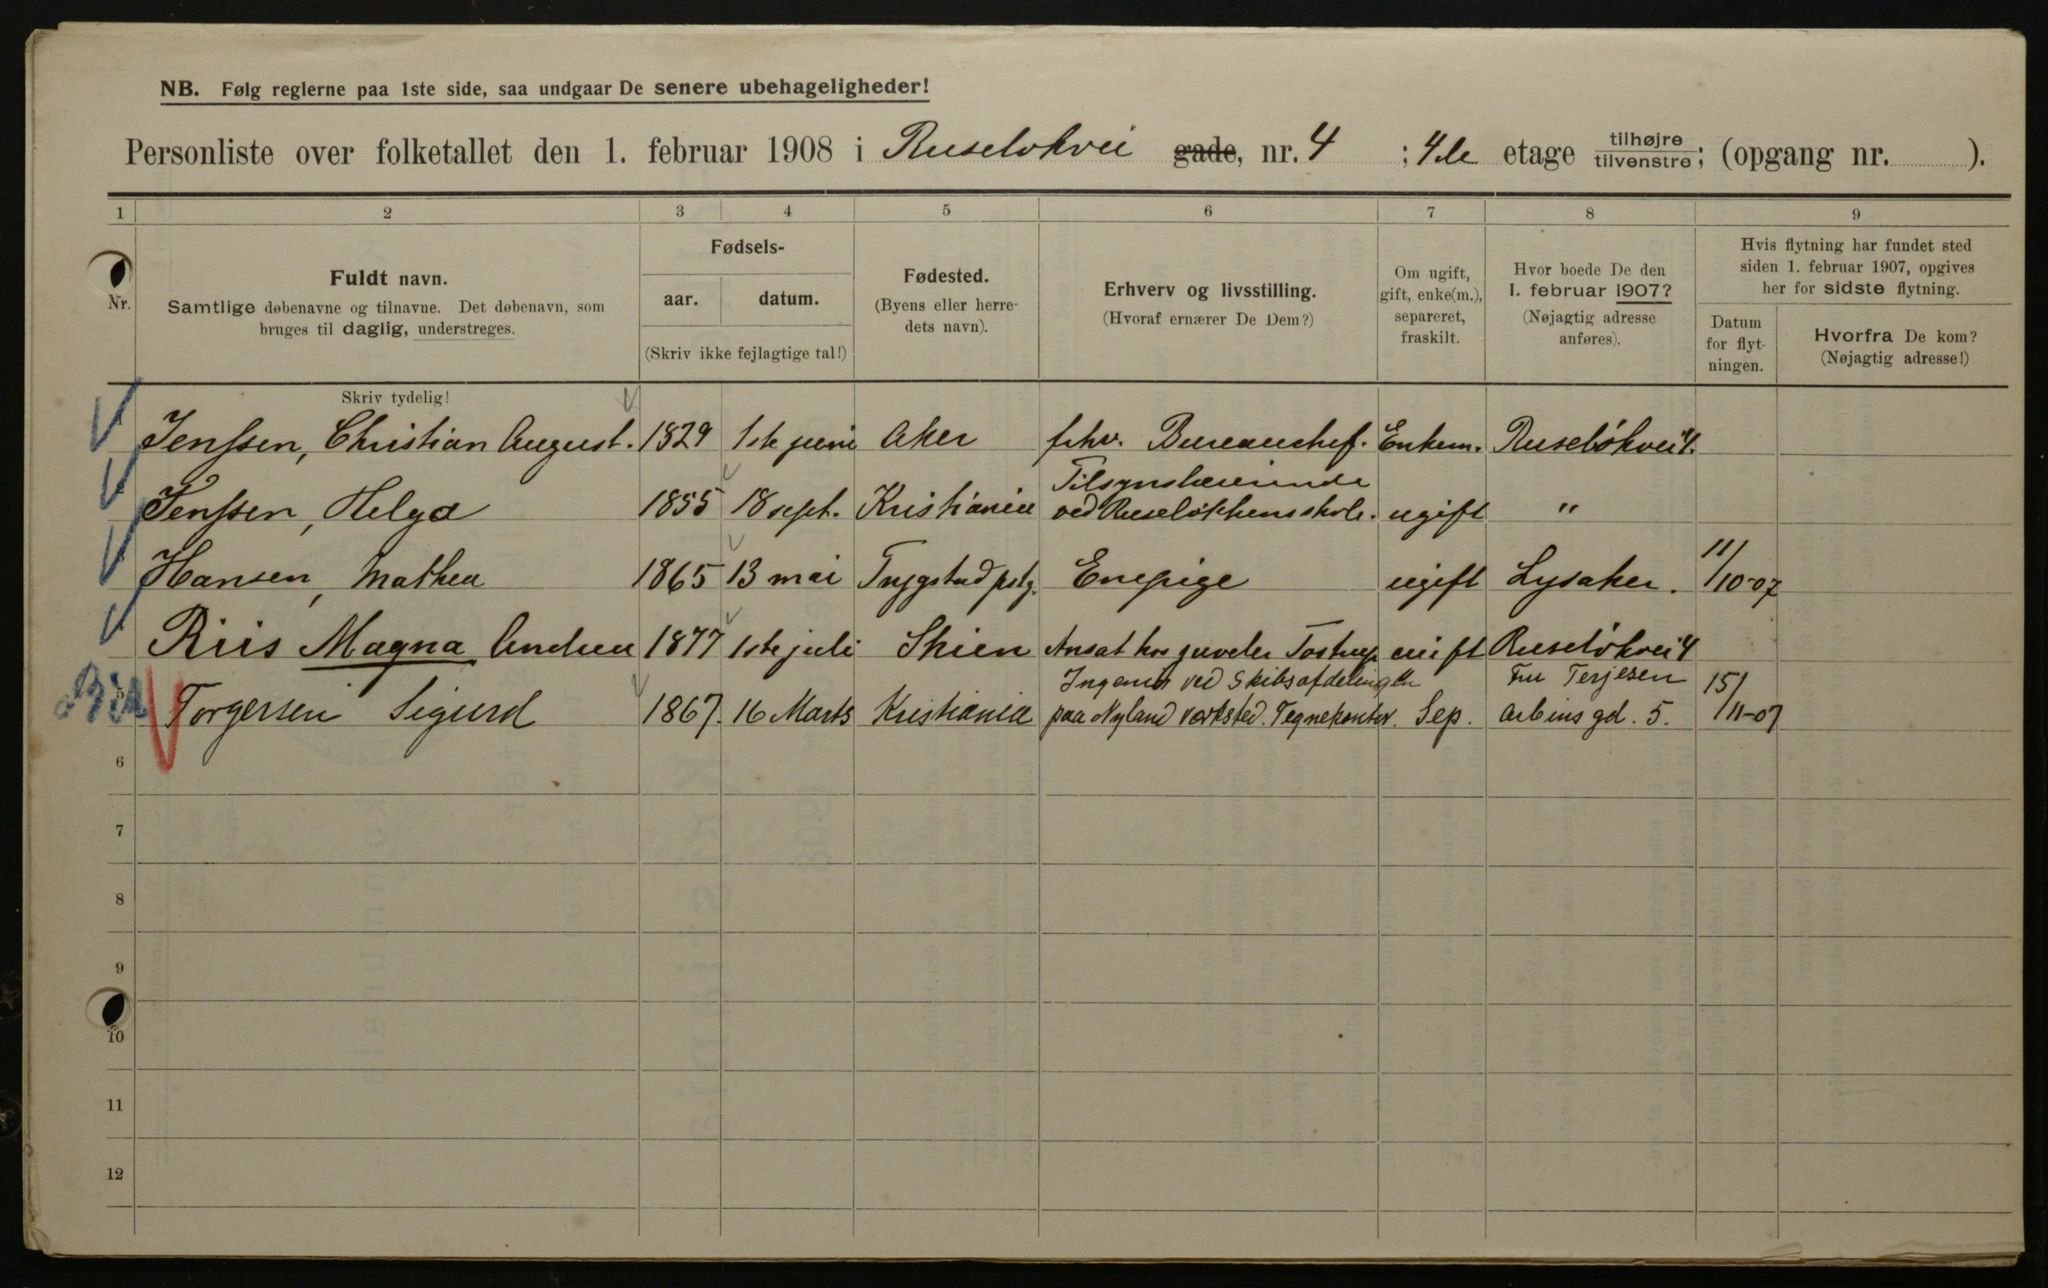 NB. Følg reglerne paa 1ste side, saa undgaar De senere ubehageligheder!
Personliste over folketallet den 1. februar 1908 i Ruseløkvei gade, nr. 4 ; 4de etage tilhøjre tilvenstre; (opgang nr. ).
1 2 3 4 5 6 7 8 9
Nr.
Fuldt navn.
Samtlige døbenavne og tilnavne. Det døbenavn, som
bruges til daglig, understreges.
Fødsels-
aar. datum.
(Skriv ikke fejlagtige tal!)
Fødested.
(Byens eller herre-
dets navn).
Erhverv og livsstilling.
(Hvoraf ernærer De Dem?)
Om ugift,
gift, enke(m.),
separeret,
fraskilt.
Hvor boede De den
1. februar 1907?
(Nøjagtig adresse
anføres).
Hvis flytning har fundet sted
siden 1. februar 1907, opgives
her for sidste flytning.
Datum
for flyt-
ningen.
Hvorfra De kom?
(Nøjagtig adresse!)
Skriv tydelig!
Jenssen, Christian August. 1829 1ste juni Aker fhv. Bureauchef. Enkem. Ruseløkvei 4.
Jenssen, Helga 1855 18 sept. Kristiania Tilsynslærerinde
ved Ruseløkkens skole. ugift "
Hansen, Mathea 1865 13 mai Trygstad pstg. Enepige ugift Lysaker. 11/10-07
Riis Magna Andrea 1877 1ste juli Skien Ansat hos juveler Tostrup ugift Ruseløkvei 4
5 Torgersen Sigurd 1867. 16 Marts Kristiania Ingeniør ved Skibsafdelingen
paa Nyland værksted. Tegnekontor. Sep. Fru Terjesen
Arbins gd. 5. 15/11-07
6
7
8
9
10
11
12